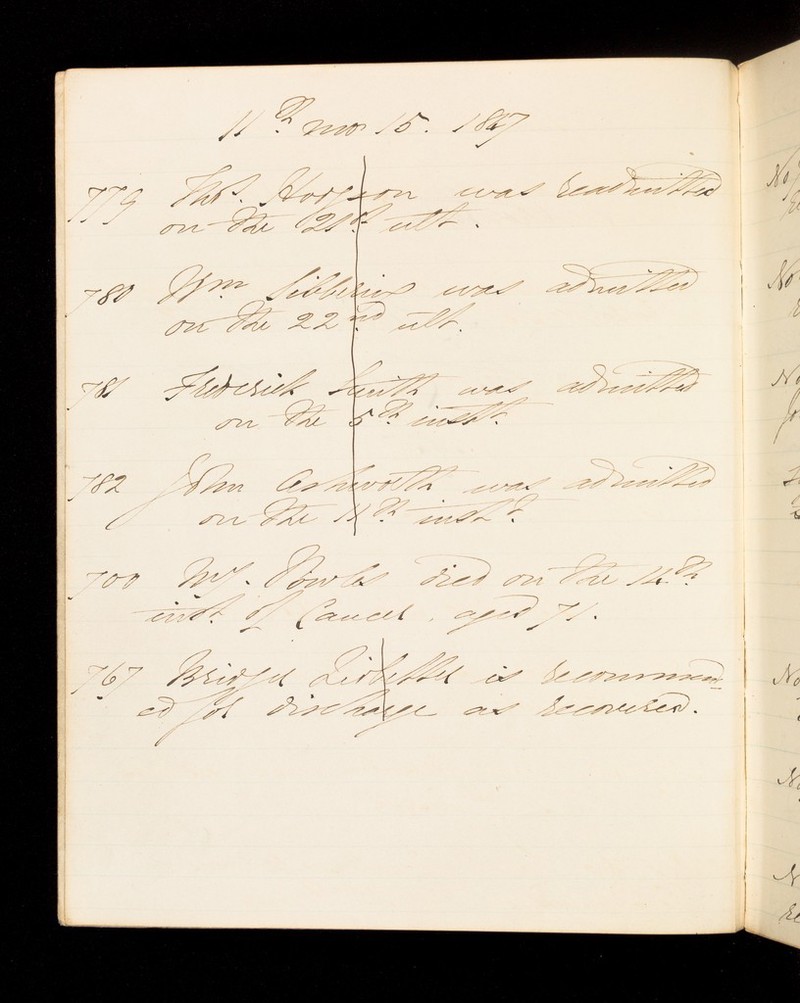 11th mo 15. 1847
779 Thos. Hodgson was readmitted
on the 21st ult.
780 Wm was admitted
on the 22nd ult.
781 Frederick Smith was admitted
on the 5th instt.
782 John Ashworth was admitted
on the 11th instt.
700 My. Bowles died on the 14th
inst. of Cancer, aged 71.
767 Bridget is recommend
ed for discharge as recovered.
No
No
No
No
No
N